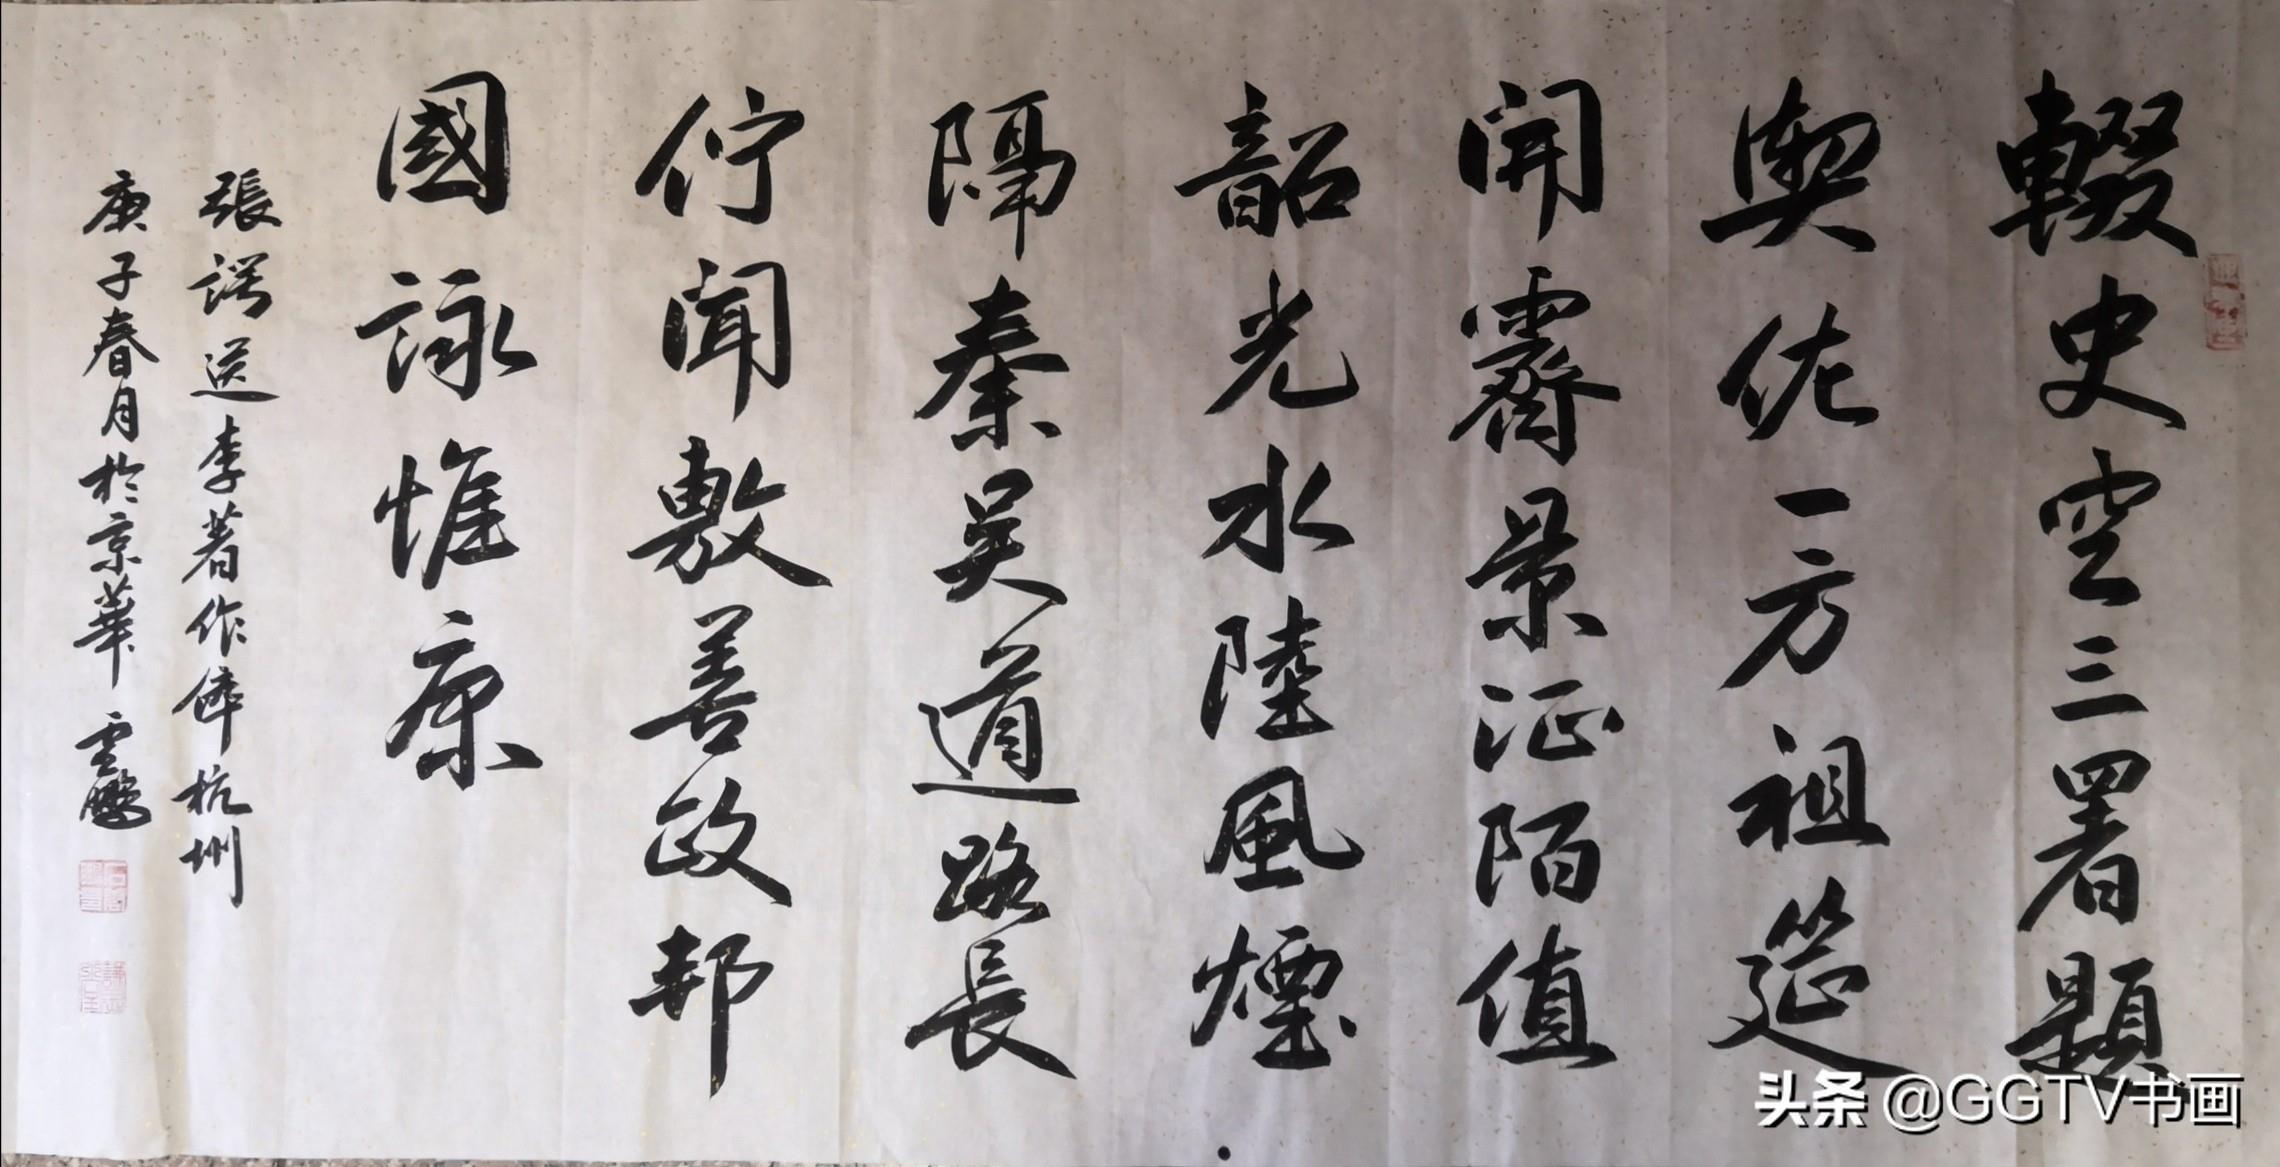 輟史空三署題
輿佐一方祖筵
開霽景征陌值
韶光水陸風煙
隔秦吴道路長
佇聞敷善政邦
國詠惟康
張諤送李著作倅杭州
庚子春月於京華 雲鵬
头条 @GGTV书画